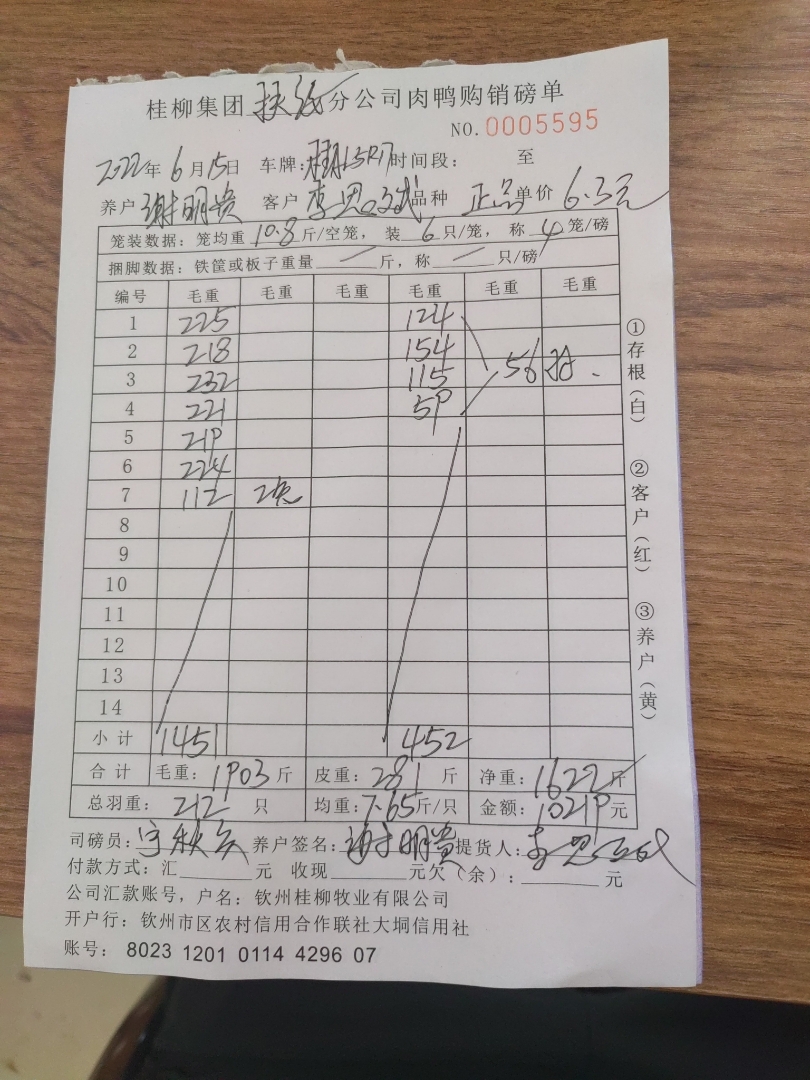 桂柳集团 扶绥 分公司肉鸭购销磅单
NO.0005595
2022年6月15日 车牌: 时间段: 至
养户 谢明贵 客户 品种 正品 单价 6.3元
笼装数据:笼均重 10.8 斤/空笼, 装 6 只/笼, 称 4 笼/磅
捆脚数据:铁筐或板子重量 — 斤,称 — 只/磅
编号 毛重 毛重 毛重 毛重 毛重 毛重
1 225 124
2 218 154
3 232 115 56只.
4 221 59
5 219
6 224
7 112 2次
8
9
10
11
12
13
14
小计 1451 452
合计 毛重:1903斤 皮重:281斤 净重:1622斤
总羽重:212只 均重:7.65斤/只 金额:10219元
司磅员: 养户签名:谢明贵 提货人:
付款方式:汇 元 收现 元欠(余): 元
公司汇款账号,户名:钦州桂柳牧业有限公司
开户行:钦州市区农村信用合作联社大垌信用社
账号: 8023 1201 0114 4296 07
①存根(白)
②客户(红)
③养户(黄)